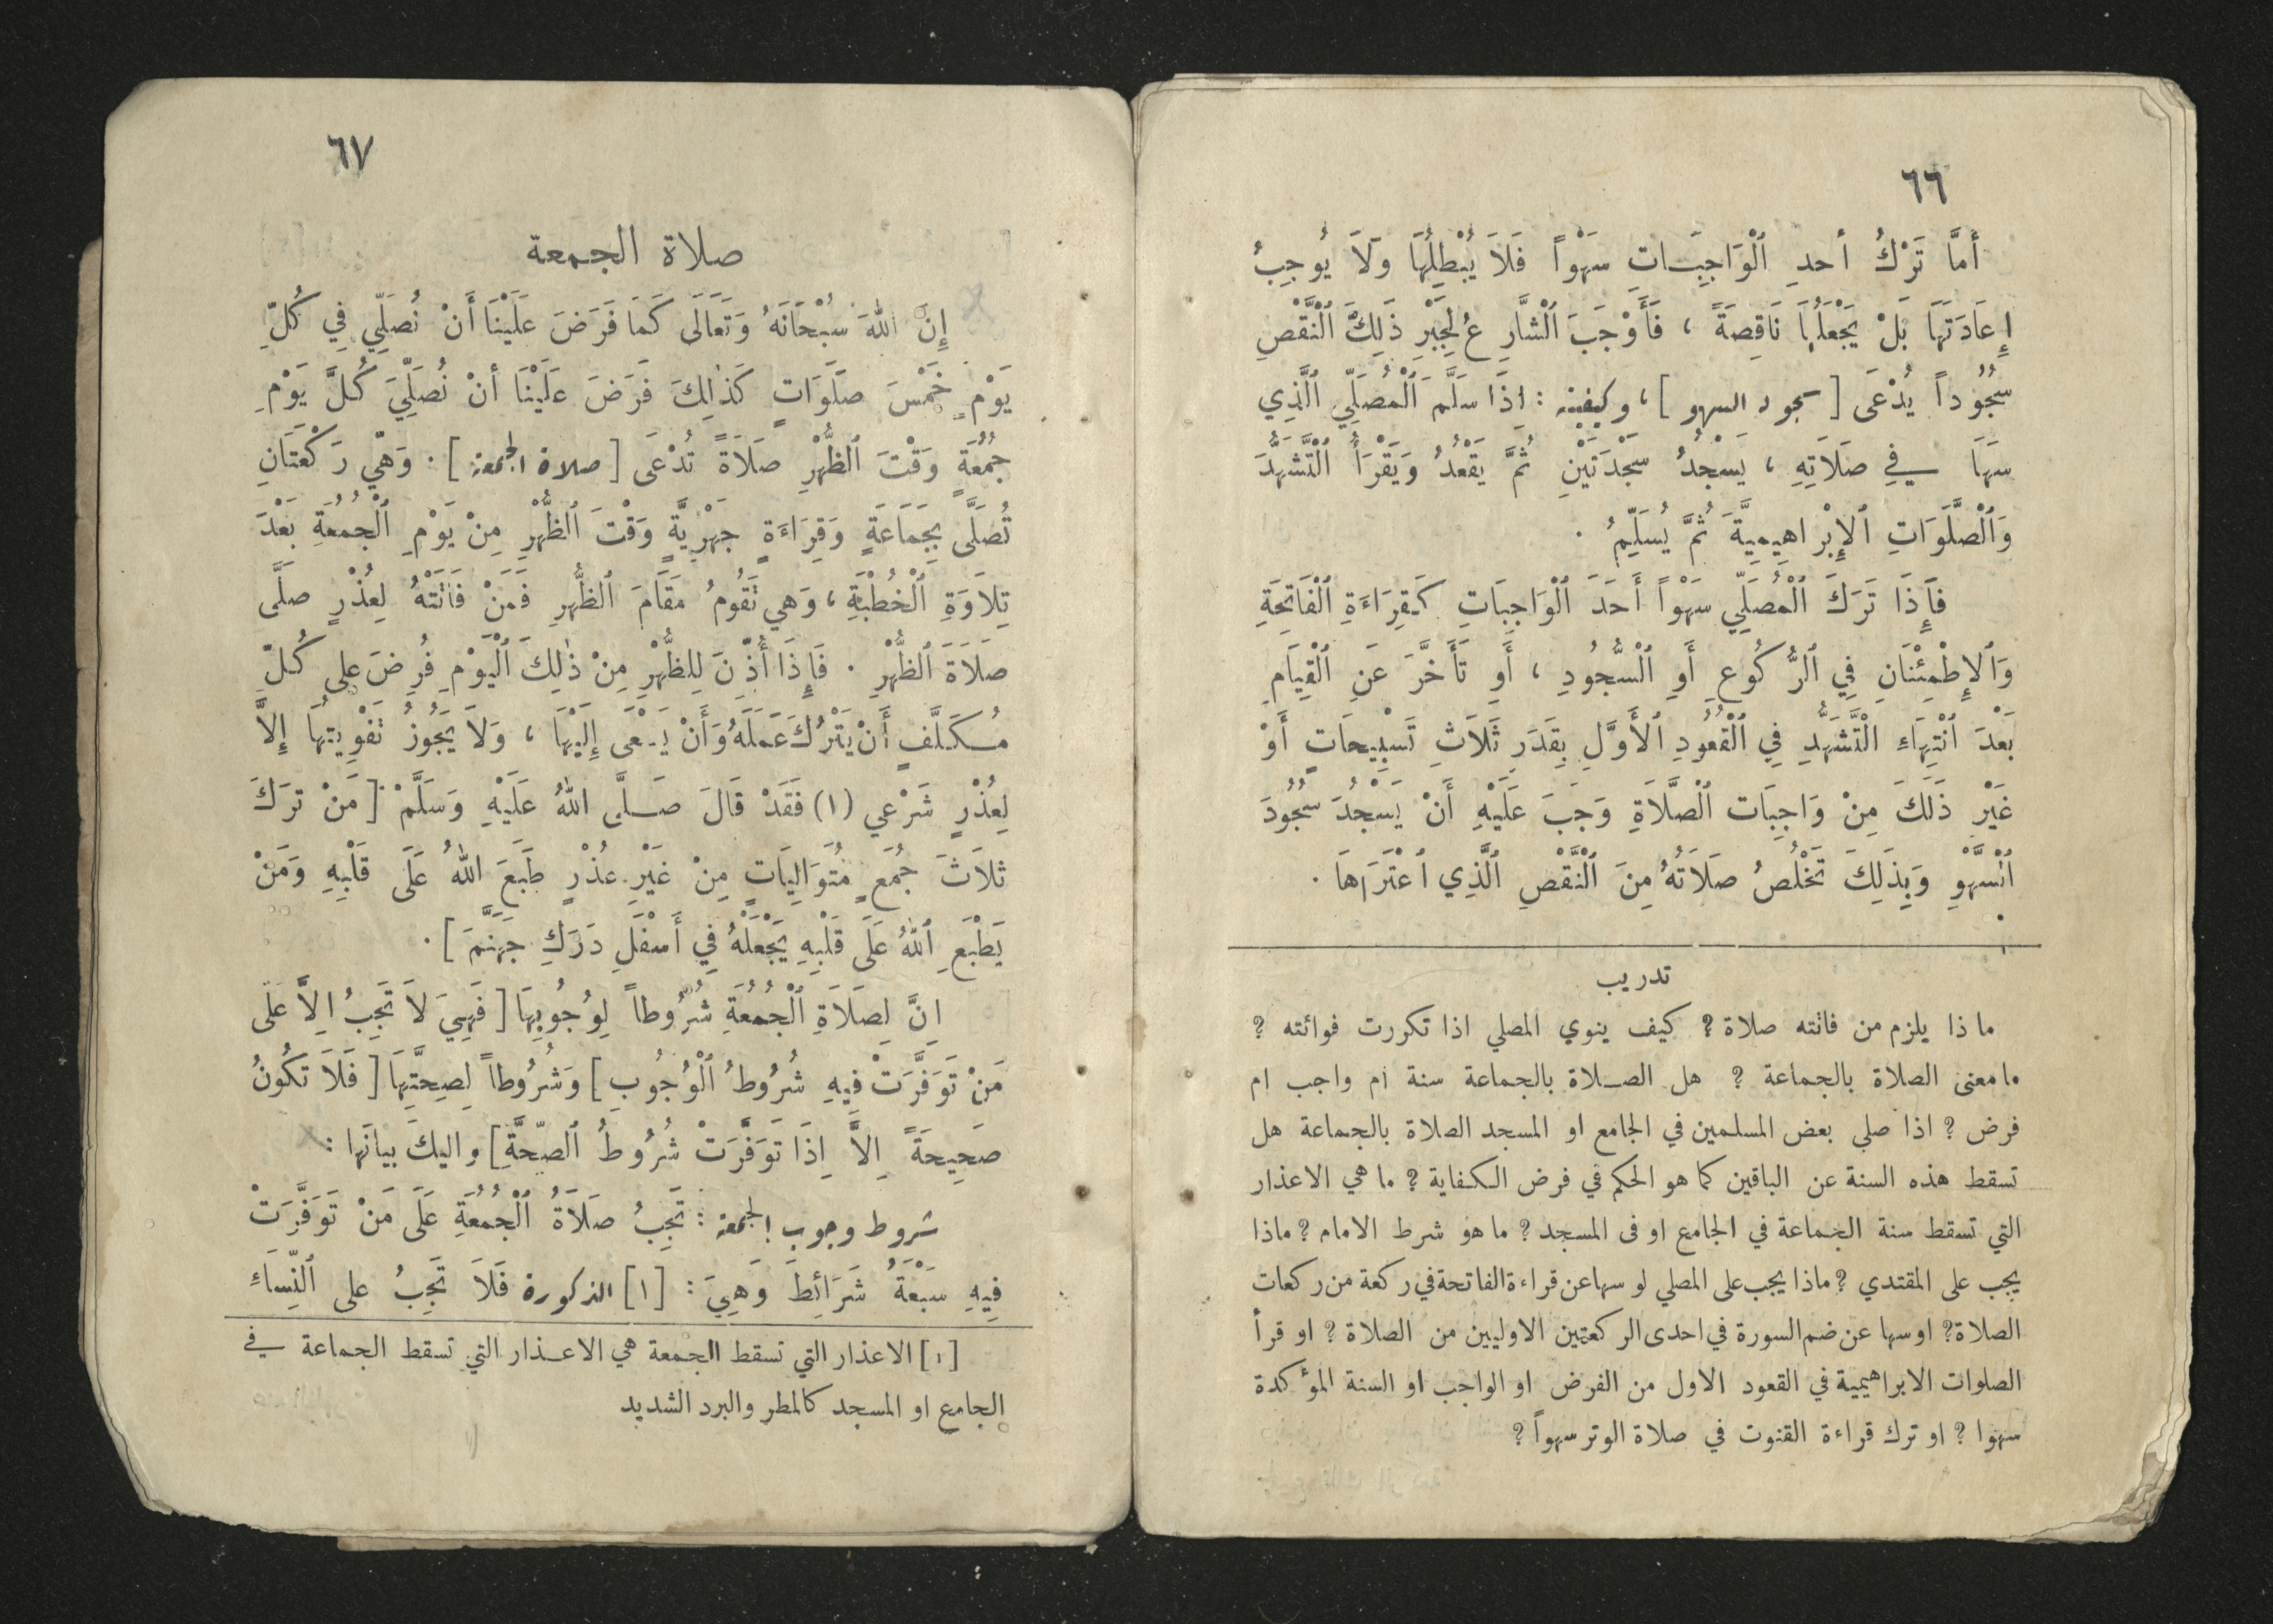 ٦٦
أَمَّا تَرْكُ أحدِ ٱلْوَاجِبَاتِ سَهْواً فَلَا يُبْطِلُهَا وَلَا يُوجِبُ
إِعَادَتَهَا بَلْ يَجْعَلُهَا نَاقِصَةً ، فَأَوْجَبَ ٱلْشَّارِعُ لِجَبْرِ ذَلِكَ ٱلْنَّقْصِ
سُجُوداً يُدْعَى [ سجود السهو ] ، وكيفيته : اِذَا سَلَّمَ ٱلْمُصَلِّي ٱلَّذِي
سَهَا فِي صَلَاتِهِ ، يَسْجُدُ سَجْدَتَيْنِ ثُمَّ يَقْعُدُ وَيَقْرَأُ ٱلْتَّشَهُّدَ
وَٱلْصَّلَوَاتِ ٱلإِبْرَاهِيمِيَّةَ ثُمَّ يُسَلِّمُ .
فَإِذَا تَرَكَ ٱلْمُصَلِّي سَهْواً أَحَدَ ٱلْوَاجِبَاتِ كَقِرَاءَةِ ٱلْفَاتِحَةِ
وَٱلإِطْمِئْنَانِ فِي ٱلرُّكُوعِ أَوِ ٱلْسُّجُودِ ، أَو تَأَخَّرَ عَنِ ٱلْقِيَامِ
بَعْدَ ٱنْتِهَاءِ ٱلْتَّشَهُّدِ فِي ٱلْقُعُودِ ٱلأَوَّلِ بِقَدَرِ ثَلَاثِ تَسْبِيحَاتٍ أَوْ
غَيْرِ ذَلَكَ مِنْ وَاجِبَات ٱلْصَّلَاةِ وَجَبَ عَلَيْهِ أَنْ يَسْجُدَ سُجُودَ
ٱلْسَّهْوِ وَبِذَلِكَ تَخْلُصُ صَلَاتُهُ مِنَ ٱلْنَّقْصِ ٱلَّذِي ٱعْتَرَاهَا .
تدريب
ماذا يلزم من فاتته صلاة ? كيف ينوي المصلي اذا تكررت فوائته ?
ما معنى الصلاة بالجماعة ? هل الصلاة بالجماعة سنة ام واجب ام
فرض ? اذا صلى بعض المسلمين في الجامع او المسجد الصلاة بالجماعة هل
تسقط هذه السنة عن الباقين كما هو الحكم في فرض الكفاية ? ما هي الاعذار
التي تسقط سنة الجماعة في الجامع او في المسجد ? ما هو شرط الامام ? ماذا
يجب على المقتدي ? ماذا يجب على المصلي لو سها عن قراءة الفاتحة في ركعة من ركعات
الصلاة ? او سها عن ضم السورة في احدى الركعتين الاوليين من الصلاة ? او قرأ
الصلوات الابراهيمية في القعود الاول من الفرض او الواجب او السنة المؤكدة
سهوا ? او ترك قراءة القنوت في صلاة الوتر سهواً ?
٦٧
صلاة الجمعة
إِنَّ اللهَ سُبْحَانَهُ وَتَعَالَى كَمَا فَرَضَ عَلَيْنَا أَنْ نُصَلِّي فِي كُلِّ
يَوْمٍ خَمْسَ صَلَوَاتٍ كَذٰلِكَ فَرَضَ عَلَيْنَا أنْ نُصَلِّيَ كُلَّ يَوْمِ
جُمُعَةٍ وَقْتَ ٱلظُّهْرِ صَلَاةً تُدْعَى [ صلاة الجمعة ] . وَهِيَ رَكْعَتَانِ
تُصَلَّى بِجَمَاعَةٍ وَقِرَاءَةٍ جَهْرِيَّةٍ وَقْتَ ٱلظُّهْرِ مِنْ يَوْمِ ٱلْجُمُعَةِ بَعْدَ
تِلَاوَةِ ٱلْخُطْبَةِ ، وَهي تَقُومُ مَقَامَ ٱلظُّهرِ فَمَنْ فَاتَتْهُ لِعُذْرٍ صَلَّى
صَلَاةَ ٱلظُّهْرِ . فَإِذَا أُذِّنَ لِلظُّهْرِ مِنْ ذٰلِكَ ٱلْيَوْمِ فُرِضَ على كُلِّ
مُكَلَّفٍ أَنْ يَتْرُكَ عَمَلَهُ وَأَنْ يَسْعَى إِلَيْهَا ، وَلَا يَجُوزُ تَفْوِيتُهَا إِلَّا
لِعُذْرٍ شَرْعي (١) فَقَدْ قَالَ صَلَّى اللهُ عَلَيْهِ وَسَلَّمْ [ مَنْ تَرَكَ
ثلَاثَ جُمَعٍ مُتَوَالِيَاتٍ مِنْ غَيْرِ عُذْرٍ طَبَعَ اللهُ عَلَى قَلْبِهِ وَمَنْ
يَطْبَعِ ٱللهُ عَلَى قَلْبِهِ يَجْعَلْهُ فِي أَسْفَلِ دَرَكِ جَهَنَّمَ ] .
اِنَّ لِصَلَاةِ ٱلْجُمُعَةِ شُرُوطاً لِوُجُوبِهَا [ فَهِيَ لَا تَجِبُ اِلَّا عَلَى
مَنْ تَوَفَّرَتْ فِيهِ شُرُوطُ ٱلْوُجُوبِ ] وَشُرُوطاً لِصِحَّتِهَا [ فَلَا تَكُونُ
صَحِيحَةً اِلَّا اِذَا تَوَفَّرَتْ شُرُوطُ ٱلصِّحَّةِ ] واليكَ بيانَها :
شروط وجوب الجمعة : تَجِبُ صَلَاةُ ٱلْجُمُعَةِ عَلَى مَنْ تَوَفَّرَتْ
فِيهِ سَبْعَةُ شَرَائِطَ وَهِيَ : [١] الذكورة فَلَا تَجِبُ على ٱلنِّسَاءِ
[١] الاعذار التي تسقط الجمعة هي الاعذار التي تسقط الجماعة في
الجامع او المسجد كالمطر والبرد الشديد